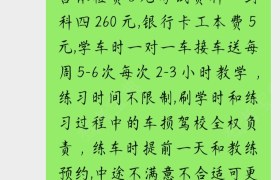 科四260元,银行卡工本费5
元,学车时一对一车接车送每
周5-6次每次2-3小时教学，
练习时间不限制,刷学时和练
习过程中的车损驾校全权负
责，练车时提前一天和教练
预约,中途不满意不合适可更